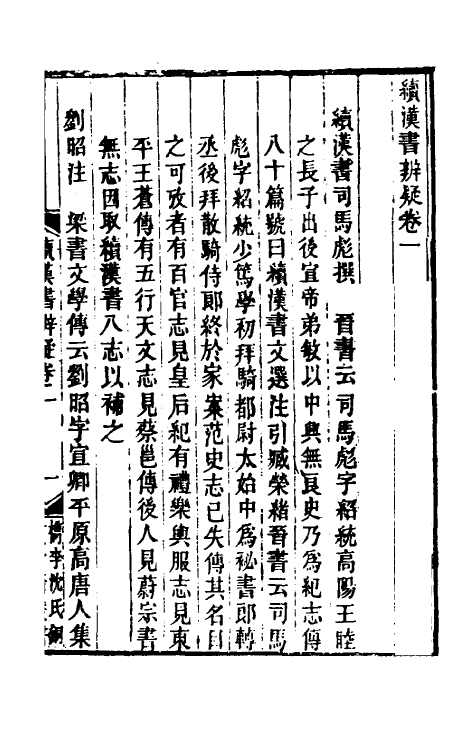 續漢書辨疑卷一
續漢書司馬彪撰　晉書云司馬彪字紹統高陽王睦
之長子出後宣帝弟敏以中興無良史乃爲紀志傳
八十篇號曰續漢書文選注引臧榮緒晉書云司馬
彪字紹統少篤學初拜騎都尉太始中爲祕書郎轉
丞後拜散騎侍郞終於家案范史志已失傳其名目
之可攷者有百官志見皇后紀有禮樂輿服志見東
平王蒼傳有五行天文志見蔡邕傳後人見蔚宗書
無志因取續漢書八志以補之
劉昭注　梁書文學傳云劉昭字宣卿平原高唐人集
續漢書辨疑卷一　一　槜李沈氏銅